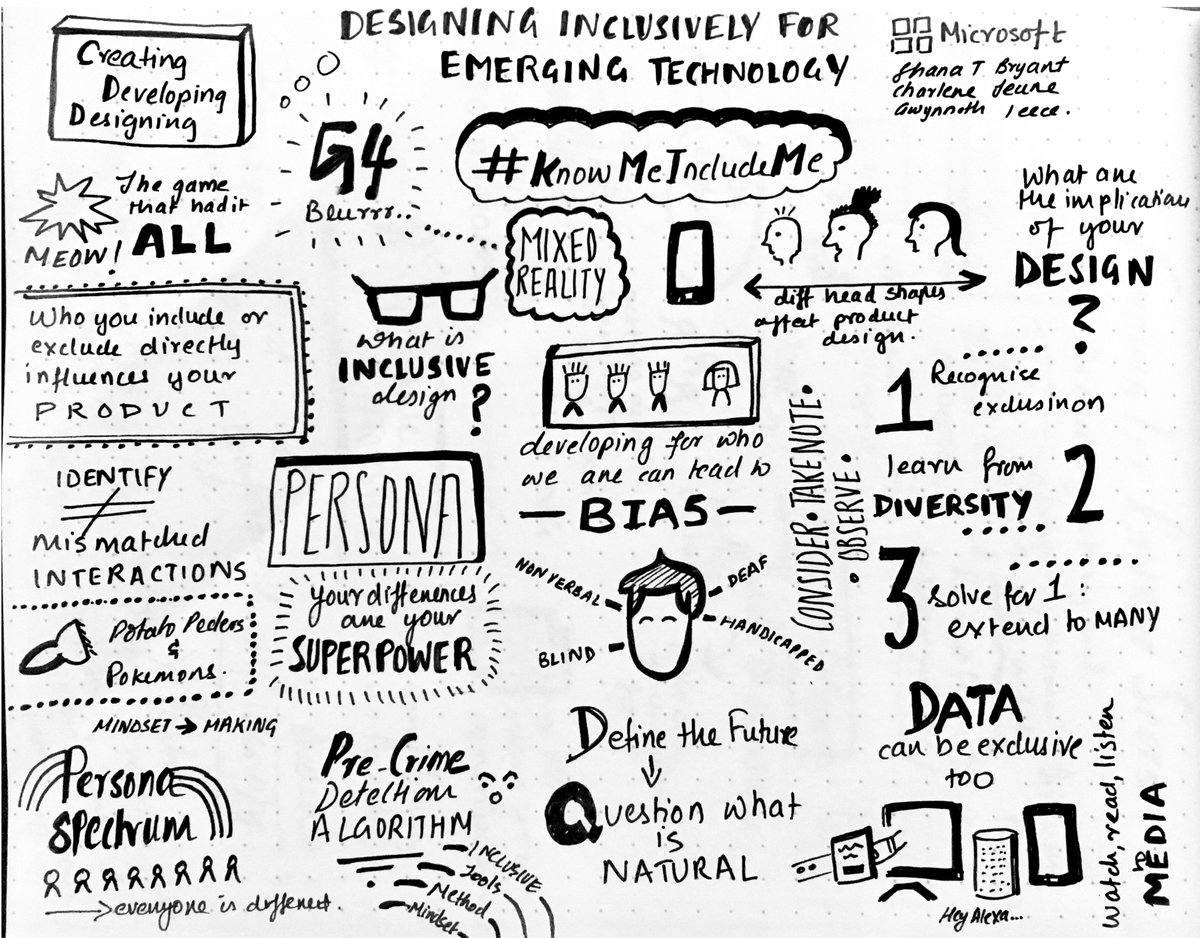 DESIGNING INCLUSIVELY FOR
EMERGING TECHNOLOGY
Microsoft
Shana T Bryant
Charlene Jeune
Gwynneth
Creating
Developing
Designing
G4
Blurrr..
#KnowMeIncludeMe
The game
that had it
ALL
MEOW!
MIXED
REALITY
diff head shapes
affect product
design.
What are
the implications
of your
DESIGN
?
Who you include or
exclude directly
influences your
PRODUCT
what is
INCLUSIVE
design ?
developing for who
we are can lead to
— BIAS —
CONSIDER • TAKE NOTE •
• OBSERVE •
1 Recognise
exclusinon
learn from 2
DIVERSITY
3 Solve for 1 :
extend to MANY
IDENTIFY
mismatched
INTERACTIONS
PERSONA
your differences
are your
SUPERPOWER
NONVERBAL
DEAF
HANDICAPPED
BLIND
Potato Peelers
&
Pokemons.
MINDSET → MAKING
Persona
Spectrum
→ everyone is different.
Pre-Crime
Detection
ALGORITHM
INCLUSIVE
Tools
Method
Mindset
Define the Future
↓
Question what
is
NATURAL
DATA
can be exclusive
too
Hey Alexa...
watch, read, listen
to
MEDIA